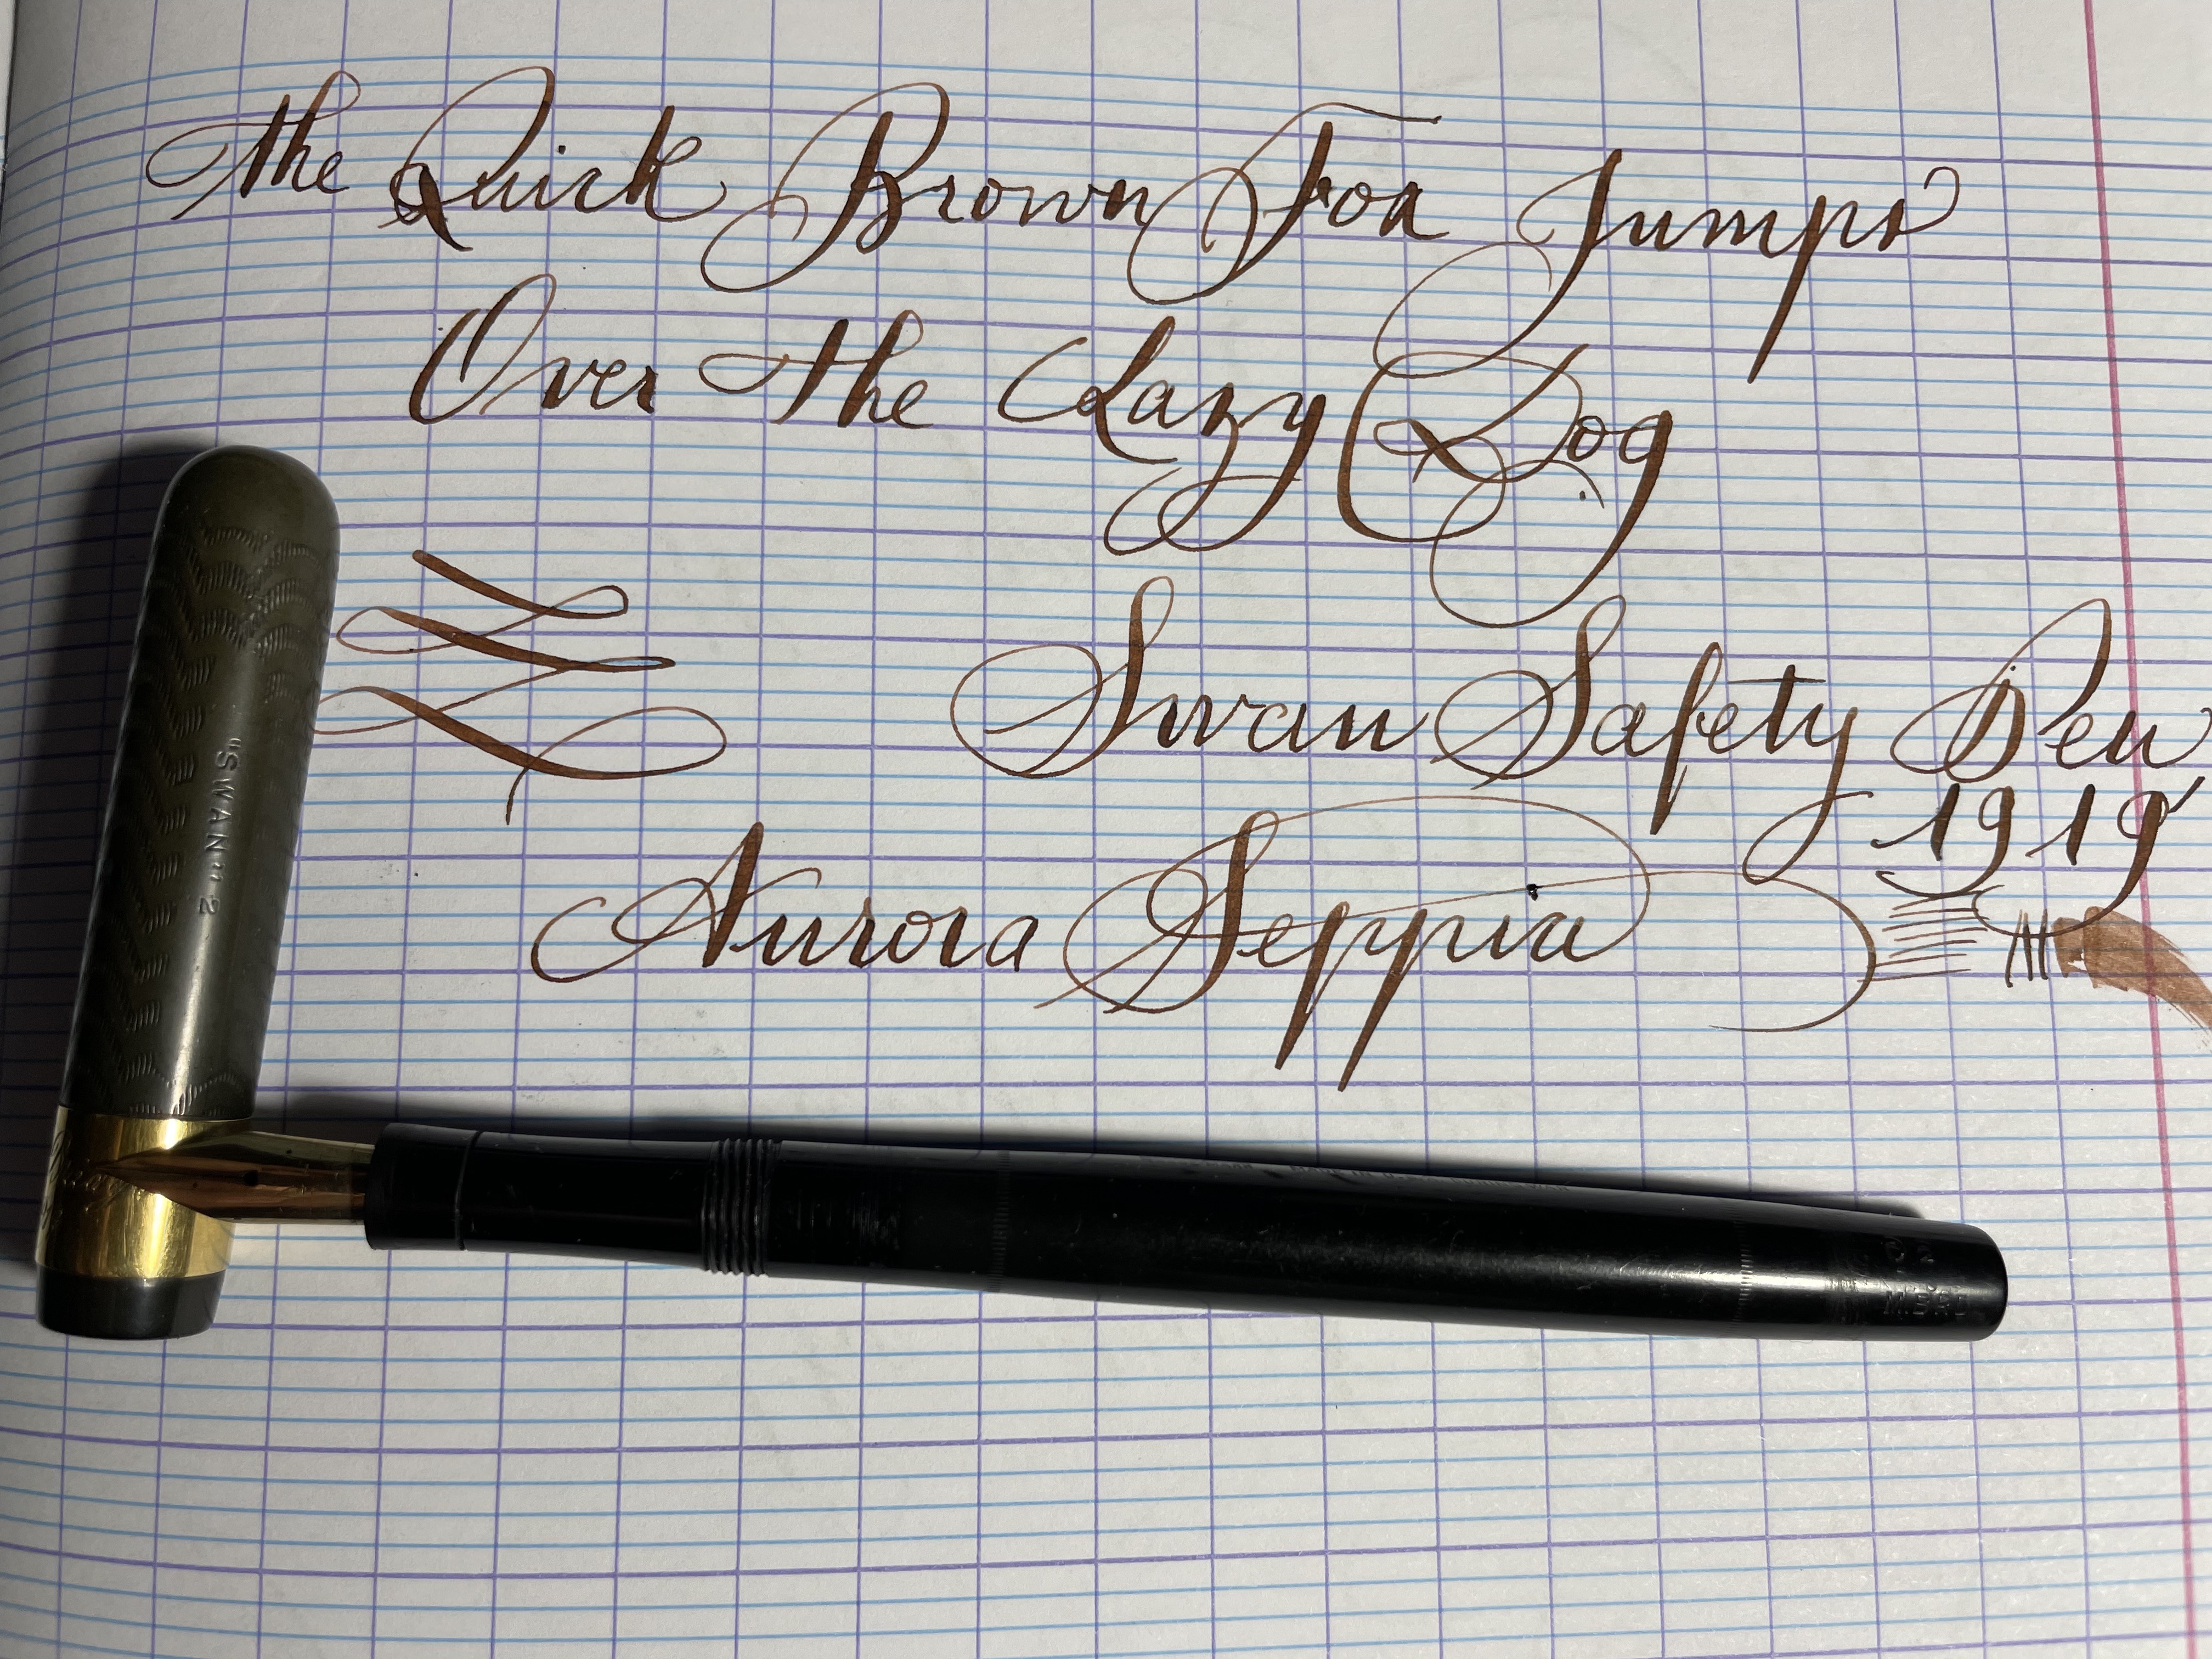 The Quick Brown Fox Jumps
Over The Lazy Dog
Swan Safety Pen
1919
Aurora Seppia
"SWAN" 2